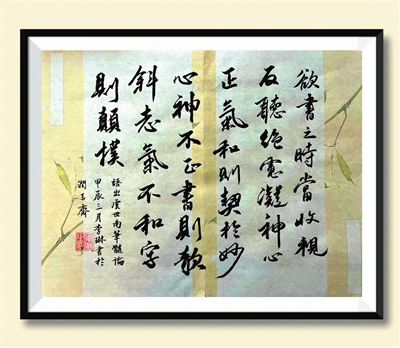 欲書之時當收視
反聽絕慮凝神心
正氣和則契於妙
心神不正書則欹
斜志氣不和字
則顛撲
語出虞世南筆髓論
甲辰三月李琳書於
潤玉齋